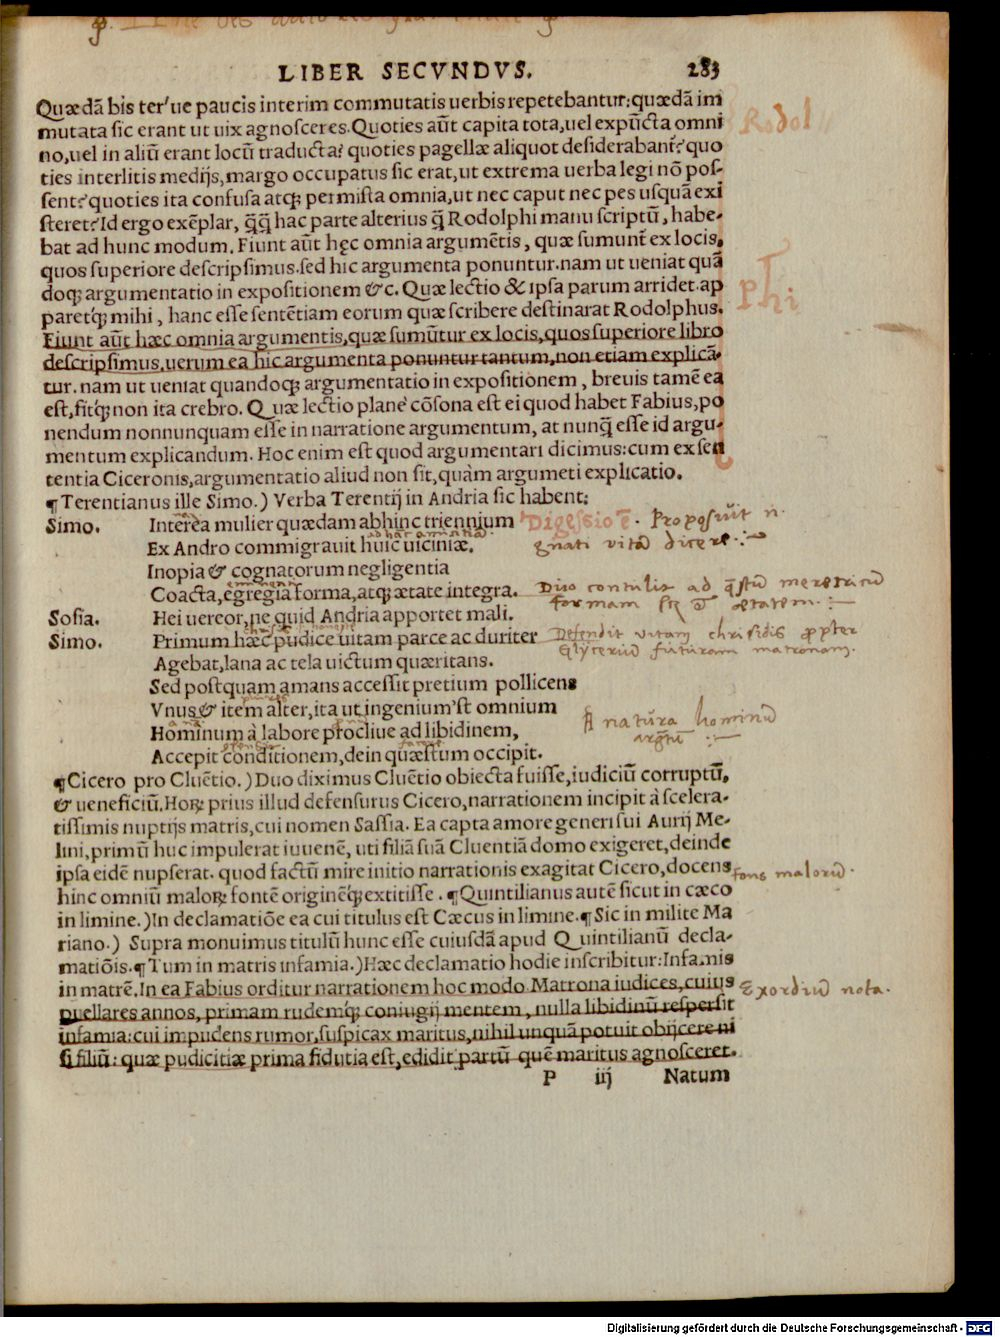 LIBER SECVNDVS. 283
Quædã bis ter'ue paucis interim commutatis uerbis repetebantur: quædã im
mutata sic erant ut uix agnosceres. Quoties aũt capita tota, uel expũcta omni
no, uel in aliũ erant locũ traducta? quoties pagellæ aliquot desiderabant̃? quo
ties interlitis medijs, margo occupatus sic erat, ut extrema uerba legi nõ pos-
sent? quoties ita confusa atq; permista omnia, ut nec caput nec pes usquã exi
steret? Id ergo exẽplar, q̃q̃ hac parte alterius q̃ Rodolphi manu scriptũ, habe-
bat ad hunc modum. Fiunt aũt hęc omnia argumẽtis, quæ sumunt̃ ex locis,
quos superiore descripsimus. sed hic argumenta ponuntur. nam ut ueniat quã
doq; argumentatio in expositionem &c. Quæ lectio & ipsa parum arridet. ap
paretq́; mihi, hanc esse sentẽtiam eorum quæ scribere destinarat Rodolphus.
Fiunt aũt hæc omnia argumentis, quæ sumũtur ex locis, quos superiore libro
descripsimus, uerum ea hic argumenta ponuntur tantum, non etiam explicã-
tur. nam ut ueniat quandoq; argumentatio in expositionem, breuis tamẽ ea
est, fitq́; non ita crebro. Quæ lectio planè cõsona est ei quod habet Fabius, po
nendum nonnunquam esse in narratione argumentum, at nunq̃ esse id argu-
mentum explicandum. Hoc enim est quod argumentari dicimus: cum ex sen
tentia Ciceronis, argumentatio aliud non sit, quàm argumeti explicatio.
¶ Terentianus ille Simo.) Verba Terentij in Andria sic habent:
Simo. Interea mulier quædam abhinc triennium
Ex Andro commigrauit huic uiciniæ,
Inopia & cognatorum negligentia
Coacta, egregia forma, atq; ætate integra.
Sosia. Hei uereor, ne quid Andria apportet mali.
Simo. Primum hæc pudice uitam parce ac duriter
Agebat, lana ac tela uictum quæritans.
Sed postquam amans accessit pretium pollicens
Vnus & item alter, ita ut ingenium'st omnium
Hominum à labore procliue ad libidinem,
Accepit conditionem, dein quæstum occipit.
¶ Cicero pro Cluẽtio.) Duo diximus Cluẽtio obiecta fuisse, iudiciũ corruptũ,
& ueneficiũ. Horꝝ prius illud defensurus Cicero, narrationem incipit à scelera-
tissimis nuptijs matris, cui nomen Sassia. Ea capta amore generi sui Aurij Me-
lini, primũ huc impulerat iuuenẽ, uti filiã suã Cluentiã domo exigeret, deinde
ipsa eidẽ nupserat. quod factũ mire initio narrationis exagitat Cicero, docens
hinc omniũ malorꝝ fontẽ originẽq́; extitisse. ¶ Quintilianus autẽ sicut in cæco
in limine.) In declamatiõe ea cui titulus est Cæcus in limine. ¶ Sic in milite Ma
riano.) Supra monuimus titulũ hunc esse cuiusdã apud Quintilianũ decla-
matiõis. ¶ Tum in matris infamia.) Hæc declamatio hodie inscribitur: Infamis
in matrẽ. In ea Fabius orditur narrationem hoc modo. Matrona iudices, cuius
puellares annos, primam rudemq́; coniugij mentem, nulla libidinũ respersit
infamia: cui impudens rumor, suspicax maritus, nihil unquã potuit obijcere ni
si filiũ: quæ pudicitiæ prima fidutia est, edidit partũ quẽ maritus agnosceret.
P iij Natum
Rodol
phi
Digressio ẽ. Proposuit
gnati vitã dicere
formam ætatem
Defendit vitam chrisidis propter
Glyceriũ futuram matronam.
A natura hominũ
argtũ
fons malorũ
Exordiũ nota.
Digitalisierung gefördert durch die Deutsche Forschungsgemeinschaft - DFG